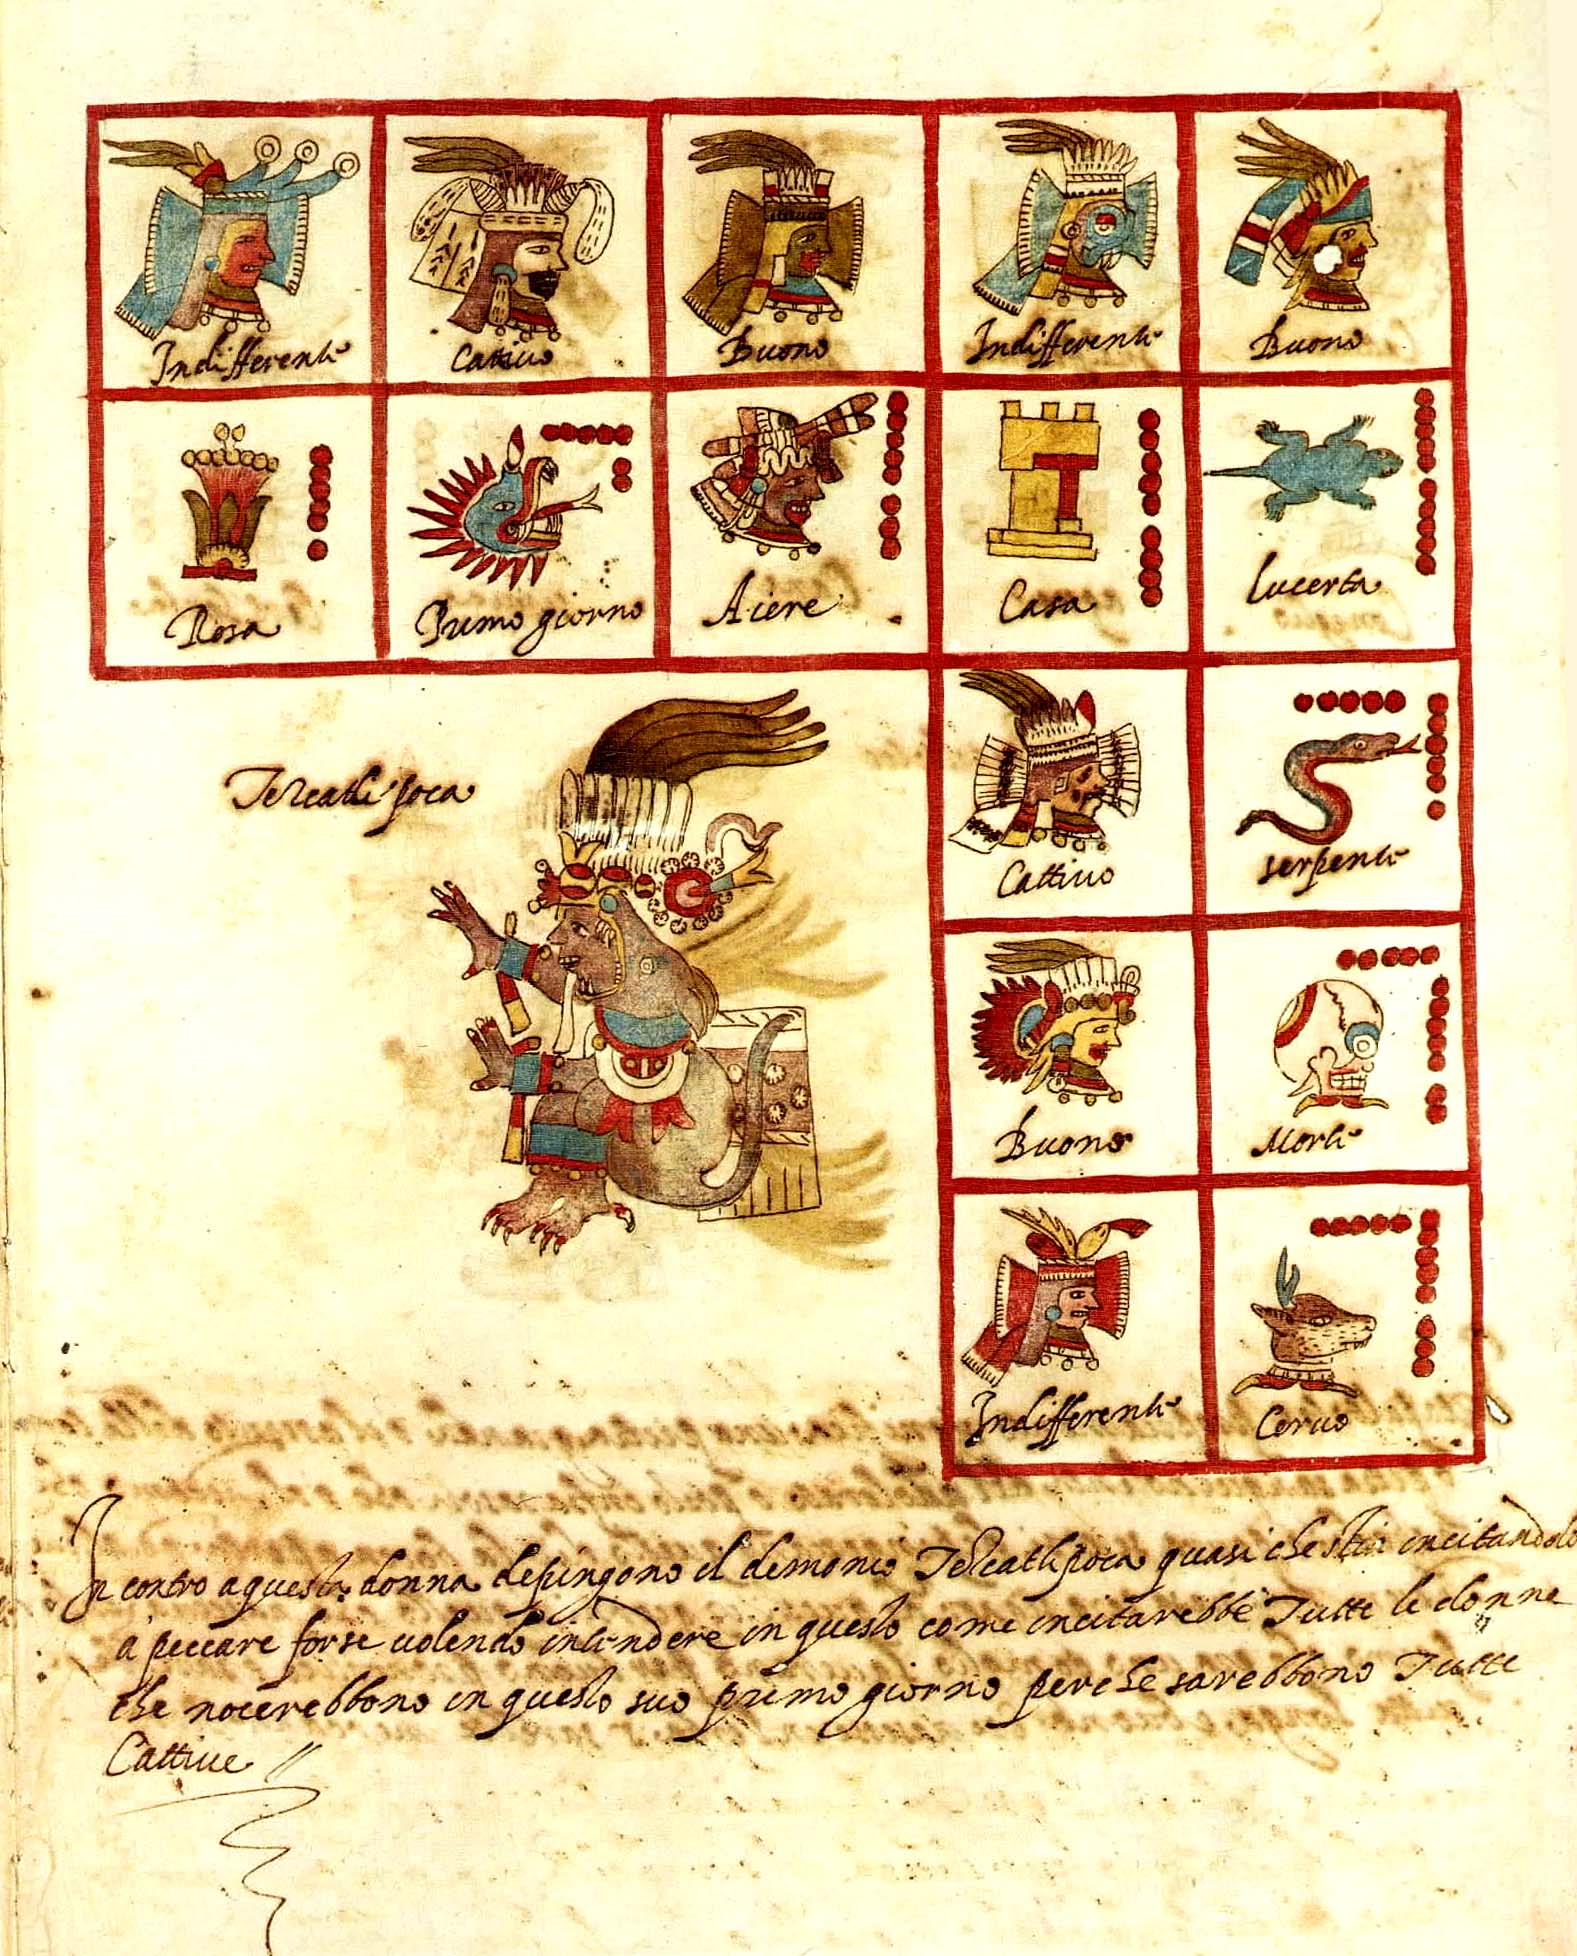 Indifferente
Cattiuo
Buono
Indifferente
Buono
Rosa
Primo giorno
Aiere
Casa
Lucerta
Tezcatlipoca
Cattiuo
serpente
Buono
Morte
Indifferente
Ceruo
In contro a questa donna depingono il demonio Tezcatlipoca quasi che stia incitandolo
à peccare forse uolendo intendere in questo come incitarebbe Tutte le donne
che nocerebbono in questo suo primo giorno perche sarebbono Tutte
Cattiue